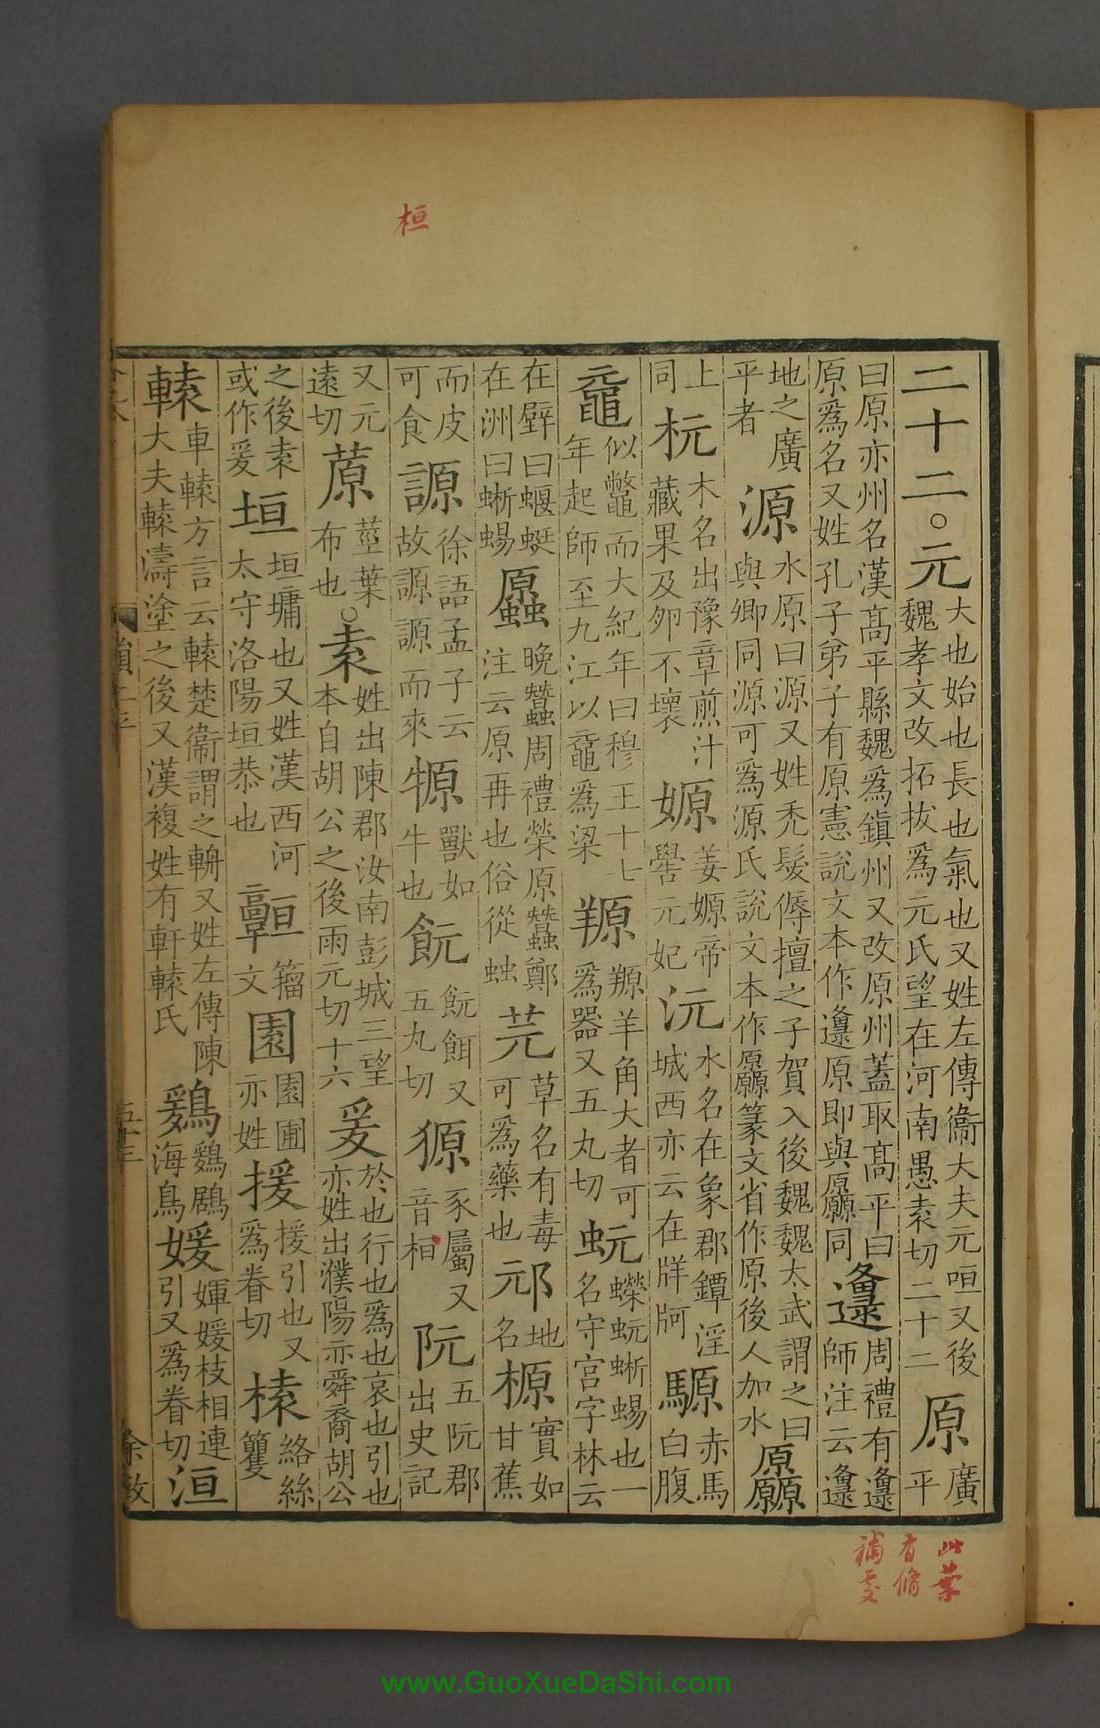 桓
二十二○元 大也始也長也氣也又姓左傳衞大夫元咺又後魏孝文改拓拔爲元氏望在河南愚袁切二十二 原 廣平
曰原亦州名漢高平縣魏爲鎭州又改原州蓋取高平曰原爲名又姓孔子弟子有原憲說文本作邍原即與厵同 邍 周禮有邍師注云邍
地之廣平者 源 水原曰源又姓禿髮傉擅之子賀入後魏魏太武謂之曰與卿同源可爲源氏說文本作厵篆文省作原後人加水 厵
上同 杬 木名出豫章煎汁藏果及夘不壞 嫄 姜嫄帝嚳元妃 沅 水名在象郡鐔淫城西亦云在牂牁 騵 赤馬白腹
黿 似鼈而大紀年曰穆王十七年起師至九江以黿爲梁 羱 羱羊角大者可爲器又五丸切 蚖 蠑蚖蜥蜴也一名守宫字林云
在壁曰蝘蜓在洲曰蜥蜴 𧒖 晚蠶周禮榮原蠶鄭注云原再也俗從䖵 芫 草名有毒可爲藥也 邧 地名 榞 實如甘蕉
而皮可食 謜 徐語孟子云故謜謜而來 㹉 獸如牛也 飦 飦餌又五丸切 獂 豕屬又音桓 阮 五阮郡出史記
又元遠切 蒝 莖葉布也○袁 姓出陳郡汝南彭城三望本自胡公之後雨元切十六 爰 於也行也爲也哀也引也亦姓出濮陽亦舜裔胡公
之後袁或作爰 垣 垣墉也又姓漢西河太守洛陽垣恭也 𩫨 籀文 園 園圃亦姓 援 援引也又爲眷切 榬 絡絲籰
轅 車轅方言云轅楚衞謂之輈又姓左傳陳大夫轅濤塗之後又漢複姓有軒轅氏 鶢 鶢鶋海鳥 媛 嬋媛枝相連引又爲眷切 洹
余敏
此葉
有脩
補處
www.GuoXueDaShi.com